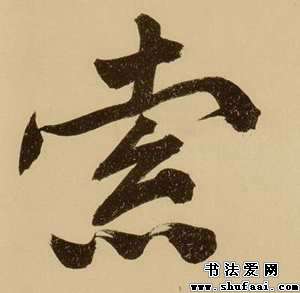 索
书法爱网
www.shufaai.com